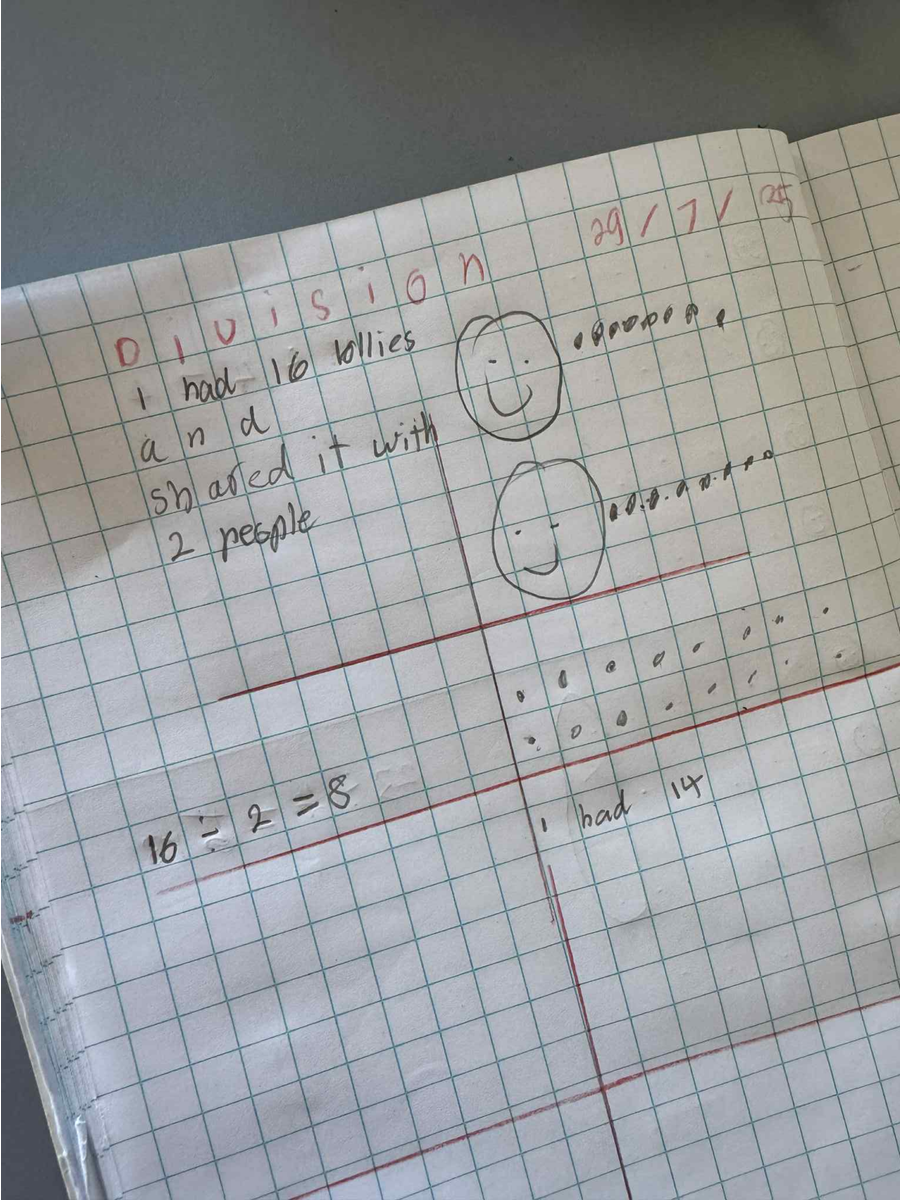 Division 29/7/25
I had 16 lollies
and
shared it with
2 people
16 ÷ 2 = 8
I had 14